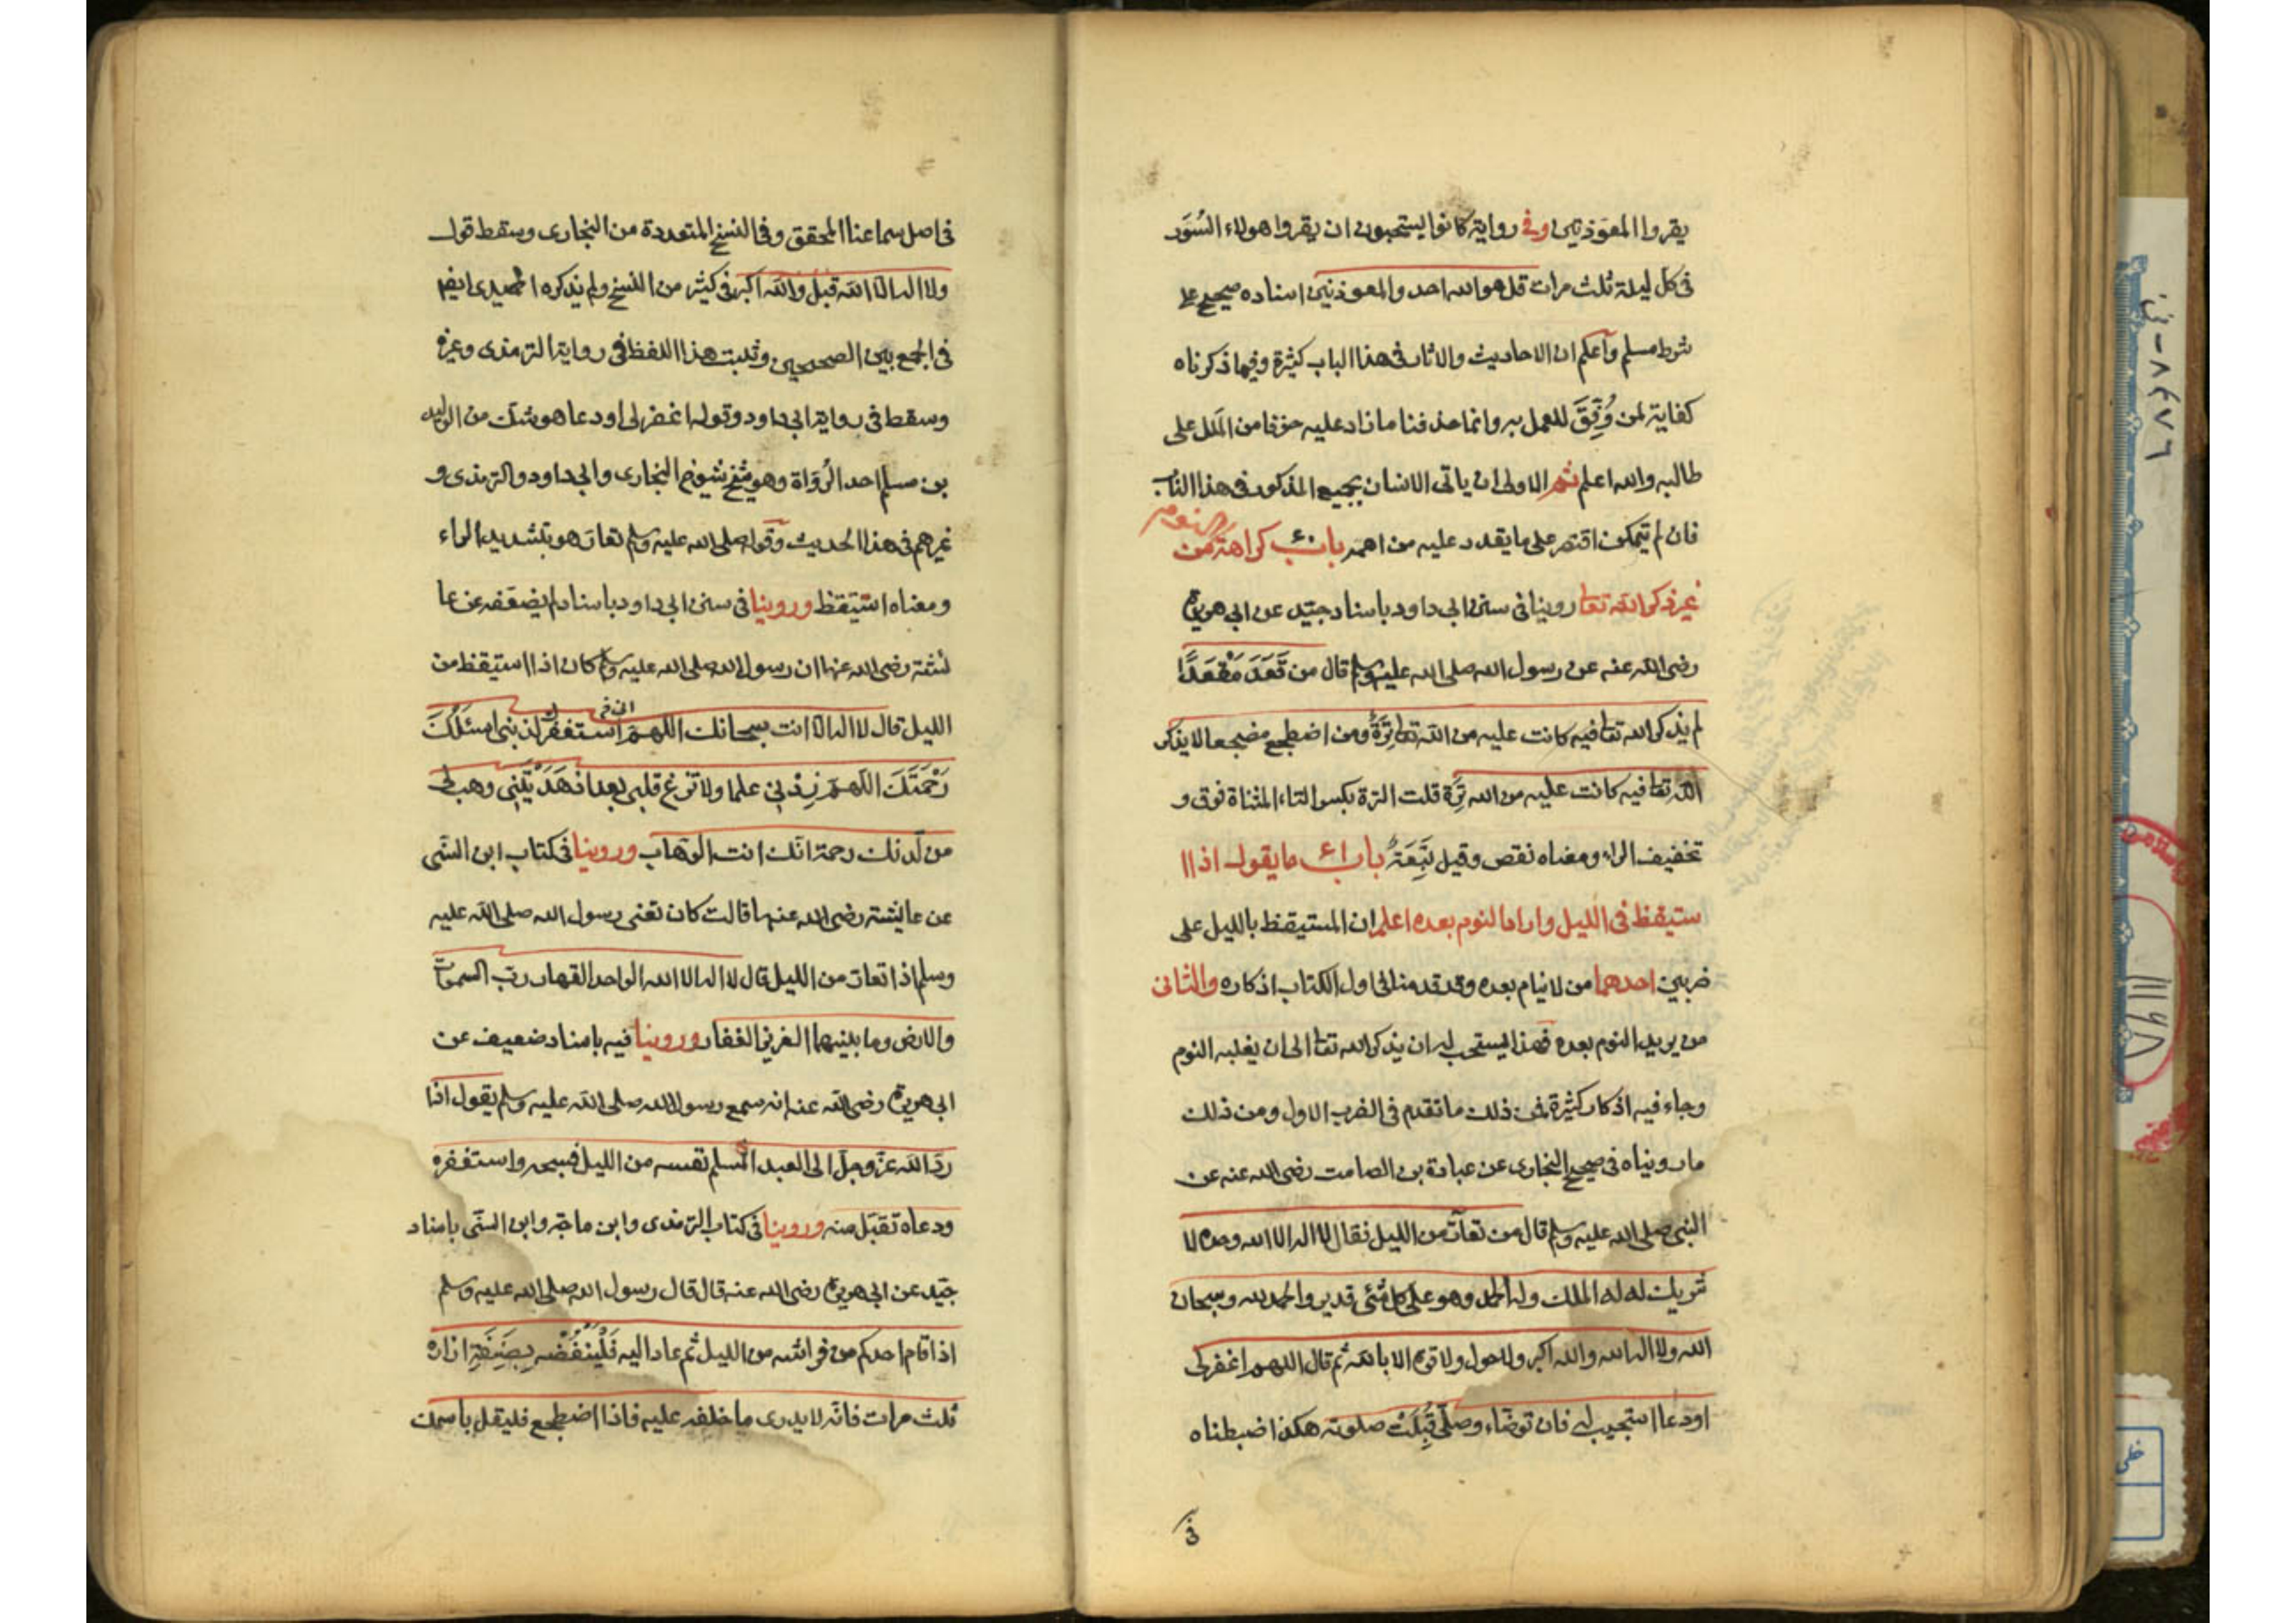 يقروا المعوذتين وفى رواية كانوا يستحبون ان يقروا هولاء السُّوَر
فى كل ليلة ثلث مرات قل هو الله احد والمعوذتين اسناده صحيح على
شرط مسلم وآعلم ان الاحاديث والاثار فى هذا الباب كثيرة وفيما ذكرناه
كفاية لمن وُفِّقَ للعمل به وانما حذفنا ما زاد عليه خوفا من المَلل على
طالبه والله اعلم ثم الاولى ان ياتى الانسان بجميع المذكور فى هذا الباب
فان لم يتمكن اقتصر على ما يقدر عليه من اهمه باب ٤٠ كراهة النوم من
غير ذكر الله تعا روينا فى سنن ابى داود باسناد جيّد عن ابى هريرة
رضى الله عنه عن رسول الله صلى الله عليه وسلم قال من قَعَدَ مَقْعَدًا
لم يذكر الله تعا فيه كانت عليه من الله تعا تِرَةٌ ومن اضطجع مضجعا لا يذكر
الله تعا فيه كانت عليه من الله تِرَة قلت الترة بكسر التاء المثناة فوق و
تخفيف الراء ومعناه نقص وقيل تَبِعَةٌ باب ٤١ ما يقول اذا ا
ستيقظ فى الليل واراد النوم بعده اعلم ان المستيقظ بالليل على
ضربين احدهما من لا ينام بعده وقد قدمنا فى اول الكتاب اذكاره والثانى
من يريد النوم بعده فهذا يستحب له ان يذكر الله تعا الى ان يغلبه النوم
وجاء فيه اذكار كثيرة فمن ذلك ما تقدم فى الضرب الاول ومن ذلك
ما رويناه فى صحيح البخارى عن عبادة بن الصامت رضى الله عنه عن
النبى صلى الله عليه وسلم قال من تعارّ من الليل فقال لا اله الا الله وحده لا
شريك له له الملك وله الحمد وهو على كل شئى قدير والحمد لله وسبحان
الله ولا اله الله والله اكبر ولا حول ولا قوة الا بالله ثم قال اللهم اغفر لى
او دعا استجيب له فان توضّاء وصلّى قُبِلَتْ صلوته هكذا ضبطناه
فى
فى اصل سماعنا المحقق وفى النسخ المتعددة من البخارى وسقط قول
ولا اله الا الله قبل والله اكبر فى كثير من النسخ ولم يذكره الحميدى ايضا
فى الجمع بين الصحيحين وثبت هذا اللفظ فى رواية الترمذى وغيره
وسقط فى رواية ابى داود وقوله اغفر لى او دعا هو شك من الوليد
بن مسلم احد الرُّوَاة وهو شيخ شيوخ البخارى وابى داود والترمذى و
غيرهم فى هذا الحديث وقوله صلى الله عليه وسلم تعارّ هو بتشديد الراء
ومعناه استيقظ وروينا فى سنن ابى داود باسناد لم يضعّفه عن عا
ئشة رضى الله عنها ان رسول الله صلى الله عليه وسلم كان اذا استيقظ من
الليل قال لا اله الا انت سبحانك اللهم استغفرك لذنبى اسئلك
رَحْمَتَكَ اللهم زِدْنى علما ولا تزغ قلبى بعد اذ هَدَيْتَنِى وهب لى
من لّدنك رحمة انّك انت الوهّاب وروينا فى كتاب ابن السنّى
عن عايشة رضى الله عنها قالت كان تعنى رسول الله صلى الله عليه
وسلم اذا تعارّ من الليل قال لا اله الا الله الواحد القهار ربّ السموات
والارض وما بينهما العزيز الغفار وروينا فيه باسناد ضعيف عن
ابى هريرة رضى الله عنه انه سمع رسول الله صلى الله عليه وسلم يقول اذا
ردّ الله عزّ وجلّ الى العبد المسلم نفسه من الليل فسبحه واستغفره
ودعاه تقبّل منه وروينا فى كتاب الترمذى وابن ماجة وابن السنّى باسناد
جيّد عن ابى هريرة رضى الله عنه قال قال رسول الله صلى الله عليه وسلم
اذا قام احدكم من فراشه من الليل ثم عاد اليه فَلْيَنْفُضْه بِصَنِفَةِ ازاره
ثلث مرات فانّه لا يدرى ما خلفه عليه فاذا اضطجع فليقل باسمك